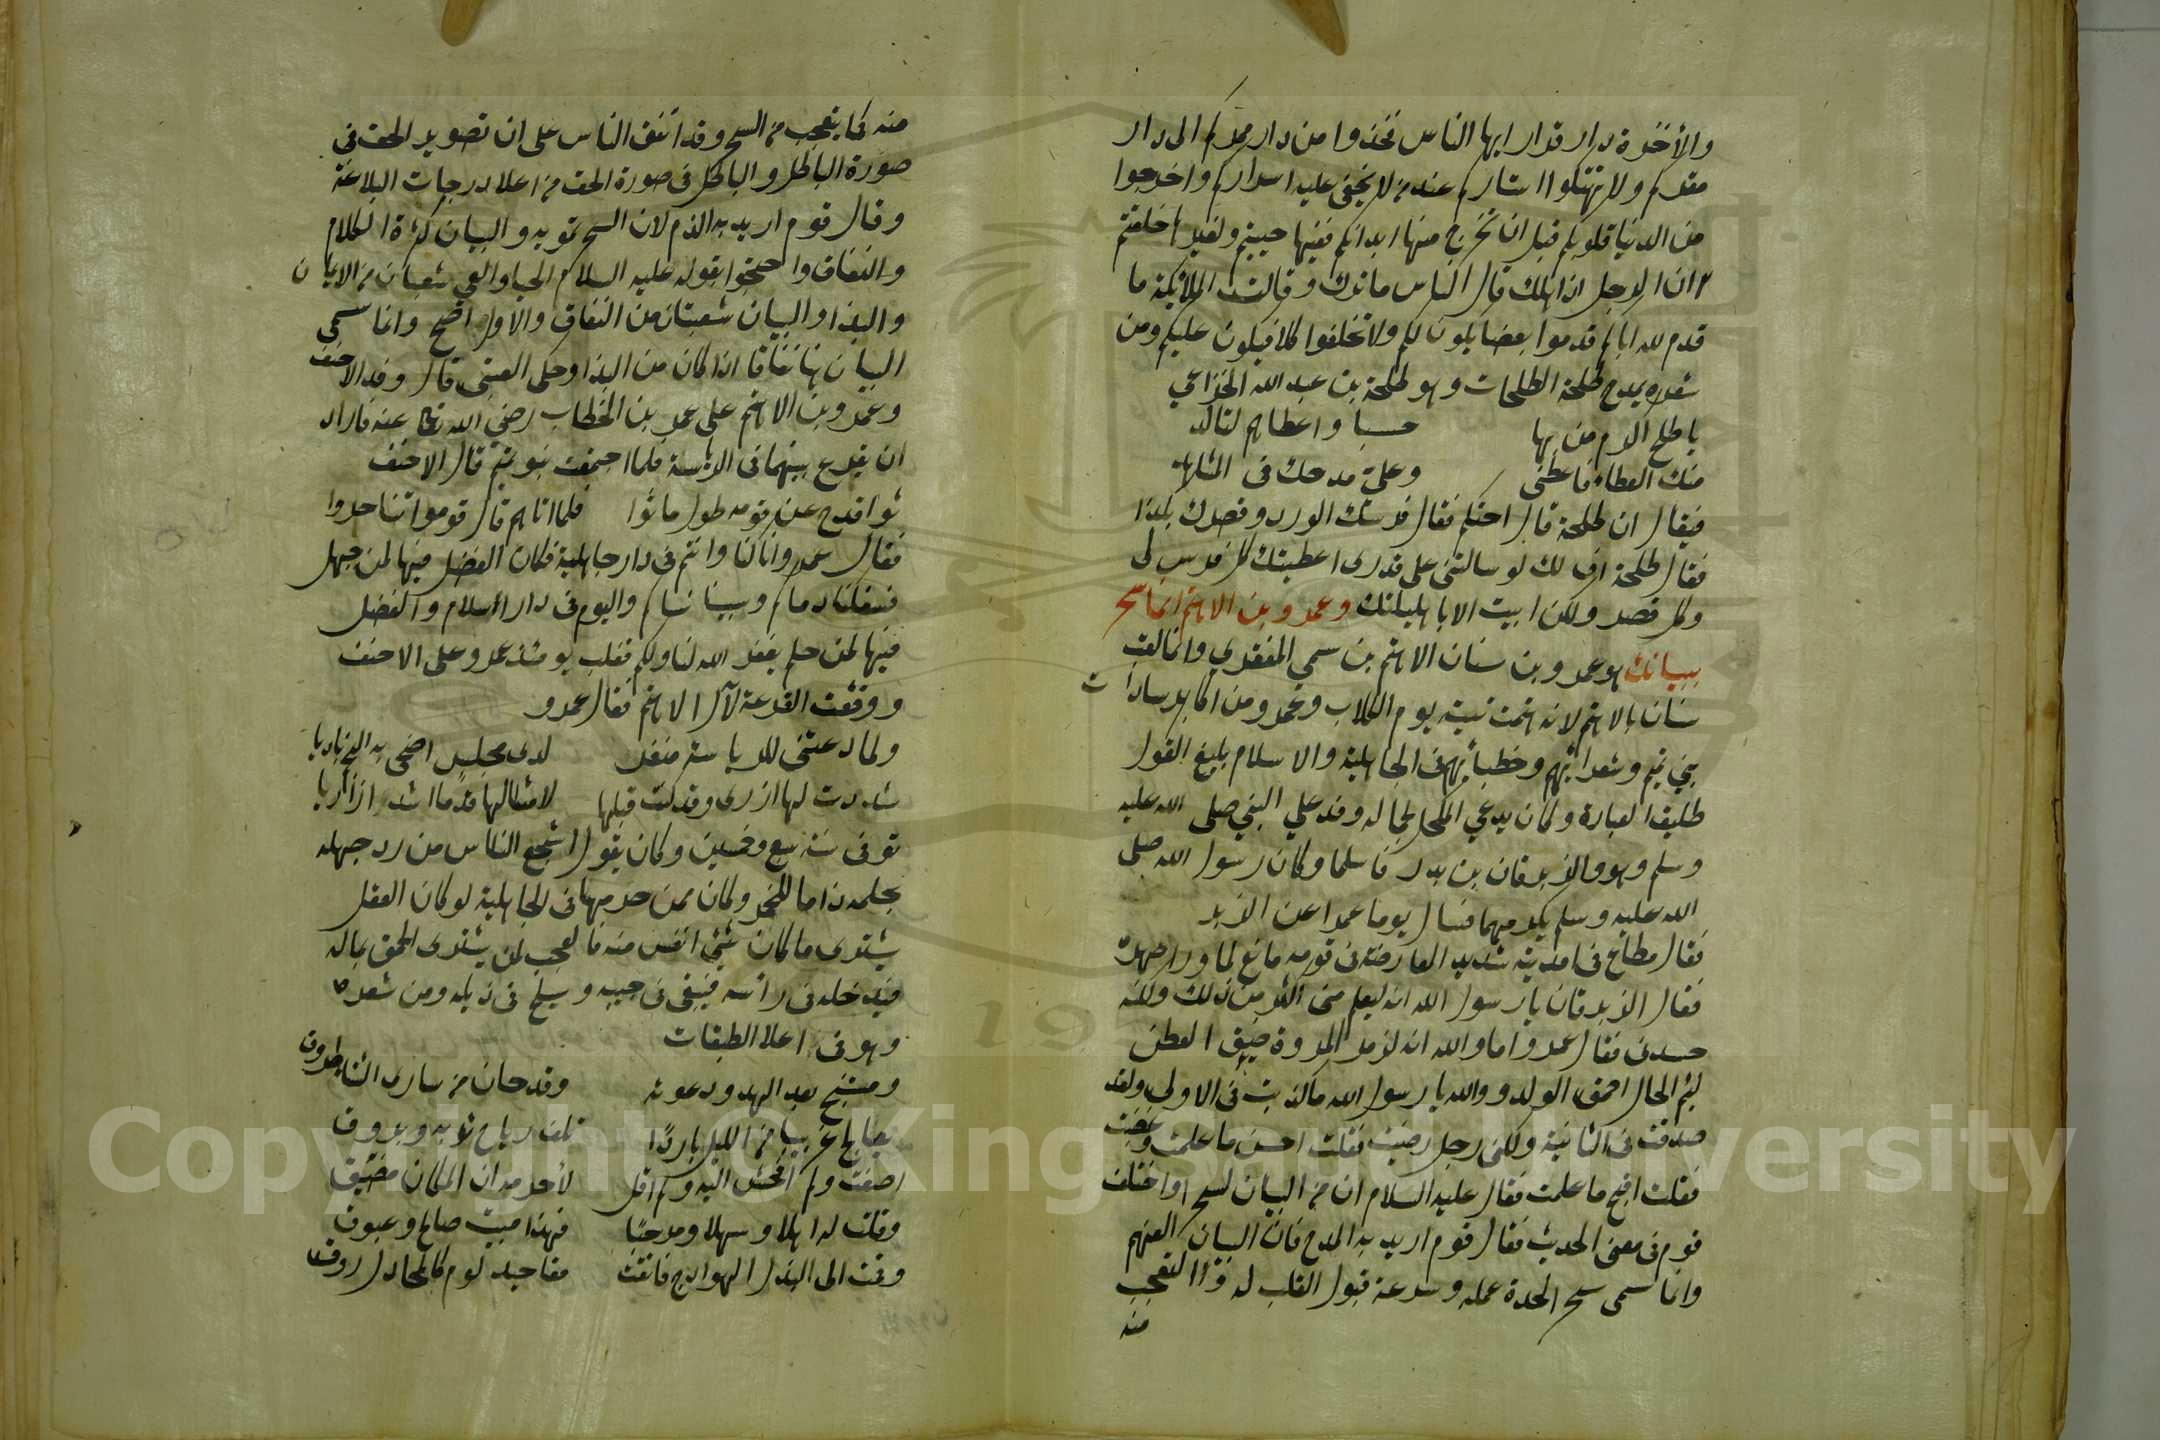 والآخرة دار قرار ايها الناس فخذوا من دار ممركم الى دار
مقركم ولا تهتكوا استاركم عند من لا يخفى عليه اسراركم واخرجوا
من الدنيا قلوبكم قبل ان تخرج منها ابدانكم ففيها حييتم ولغيرها خلقتم
ان الرجل اذا هلك قال الناس ما ترك وقالت الملائكة ما
قدم لله اباكم قدموا بعضا يكون لكم ولا تخلفوا كلا فيكون عليكم ومن
شعره يمدح طلحة الطلحات وهو طلحة بن عبد الله الخزاعي
يا طلح اكرم من بها حسبا واعطاهم لتالد
منك العطاء فاعطني وعلي مدحك في المشاهد
فيقال ان طلحة قال احتكم فقال فرسك الورد وقصرك بكذا
فقال طلحة اف لك لو سالتني على قدري اعطيتك كل فرس لي
وكل قصر ولكن ابيت الا باهليتك وعمرو بن الاهتم انما سحر
ببيانك هو عمرو بن سنان الاهتم بن سمي المنقري وانما لقب
سنان بالاهتم لانه هتمت ثنيته يوم الكلاب وعمرو من اكابر سادات
بني تميم وشعرائهم وخطبائهم في الجاهلية والاسلام بليغ القول
طليق العبارة وكان يدعى المكحل لجماله وفد على النبي صلى الله عليه
وسلم وهو والزبرقان بن بدر فاسلما وكان رسول الله صلى
الله عليه وسلم يكرمهما فسال يوما عمرا عن الزبر
فقال مطاع في ادنيه شديد العارضة في قومه مانع لما وراء ظهره
فقال الزبرقان يا رسول الله انه ليعلم مني اكثر من ذلك ولكنه
حسدني فقال عمرو اما والله انه لزمر المروة ضيق العطن
لئيم الخال احمق الولد و والله يا رسول الله ما كذبت في الاولى ولقد
صدقت في الثانية ولكني رجل رضيت فقلت احسن ما علمت وغضبت
فقلت اقبح ما علمت فقال عليه السلام ان من البيان لسحرا واختلف
قوم في معنى الحديث فقال قوم اريد به المدح فان البيان الفهم
وانما سمى سحرا لحدة عمله وسرعة قبول القلب له والتعجب
منه
منه كما يتعجب من السحر وقد اتفق الناس على ان تصوير الحق في
صورة الباطل والباطل في صورة الحق من اعلا درجات البلاغة
وقال قوم اريد به الذم لان السحر تمويه والبيان كثرة الكلام
والنفاق واحتجوا بقوله عليه السلام الحيا والعي شعبتان من الايمان
والبذا والبيان شعبتان من النفاق والاول اصح وانما سمى
البيان ههنا نفاقا اذا كان من البذا وحكى العتبي قال وفد الاحنف
وعمرو بن الاهتم على عمر بن الخطاب رضي الله تعالى عنه فاراد
ان يقرع بينهما في الرئاسة فلما اجتمعت بنو تميم قال الاحنف
ثوا قدح عن قومه طول ما ثوا فلما اتاهم قال قوموا تناحروا
فقال عمرو انا كنا وانتم في دار جاهلية فكان الفضل فيها لمن جهل
فسفكنا دماكم وسبينا نساكم واليوم في دار الاسلام والفضل
فيها لمن حلم يغفر الله لنا ولكم فغلب يومئذ عمرو على الاحنف
ووقعت القرعة لآل الاهتم فقال عمرو
ولما دعتني للرياسة منقر لدى مجلس اضحى به النجم باديا
شددت لها ازري وقد كنت قبلها لامثالها قدما اشد ازاريا
توفى سنة سبع وخمسين وكان يقول اشجع الناس من رد جهله
بحلمه ذاما للخمر وكان ممن حرمها في الجاهلية لو كان العقل
يشترى ما كان شئ انفس منه فالعجب لمن يشترى الحمق بماله
فيدخله في راسه فيقئ في جيبه ويسلح في ذيله ومن شعره
وهو في اعلا الطبقات
ومستنبح بعد الهدو دعوته وقد حان من سارى الشتا طروق
يعالج عرنينا من الليل باردا تلف رياح ثوبه وبروق
اضفت ولم افحش اليه ولم اقل لاحرمه ان المكان مضيق
وقلت له اهلا وسهلا ومرحبا فهذا مبيت صالح وغبوق
وقمت الى البزل الهواجد فاتقت مقاحيد كوم كالمجادل روق